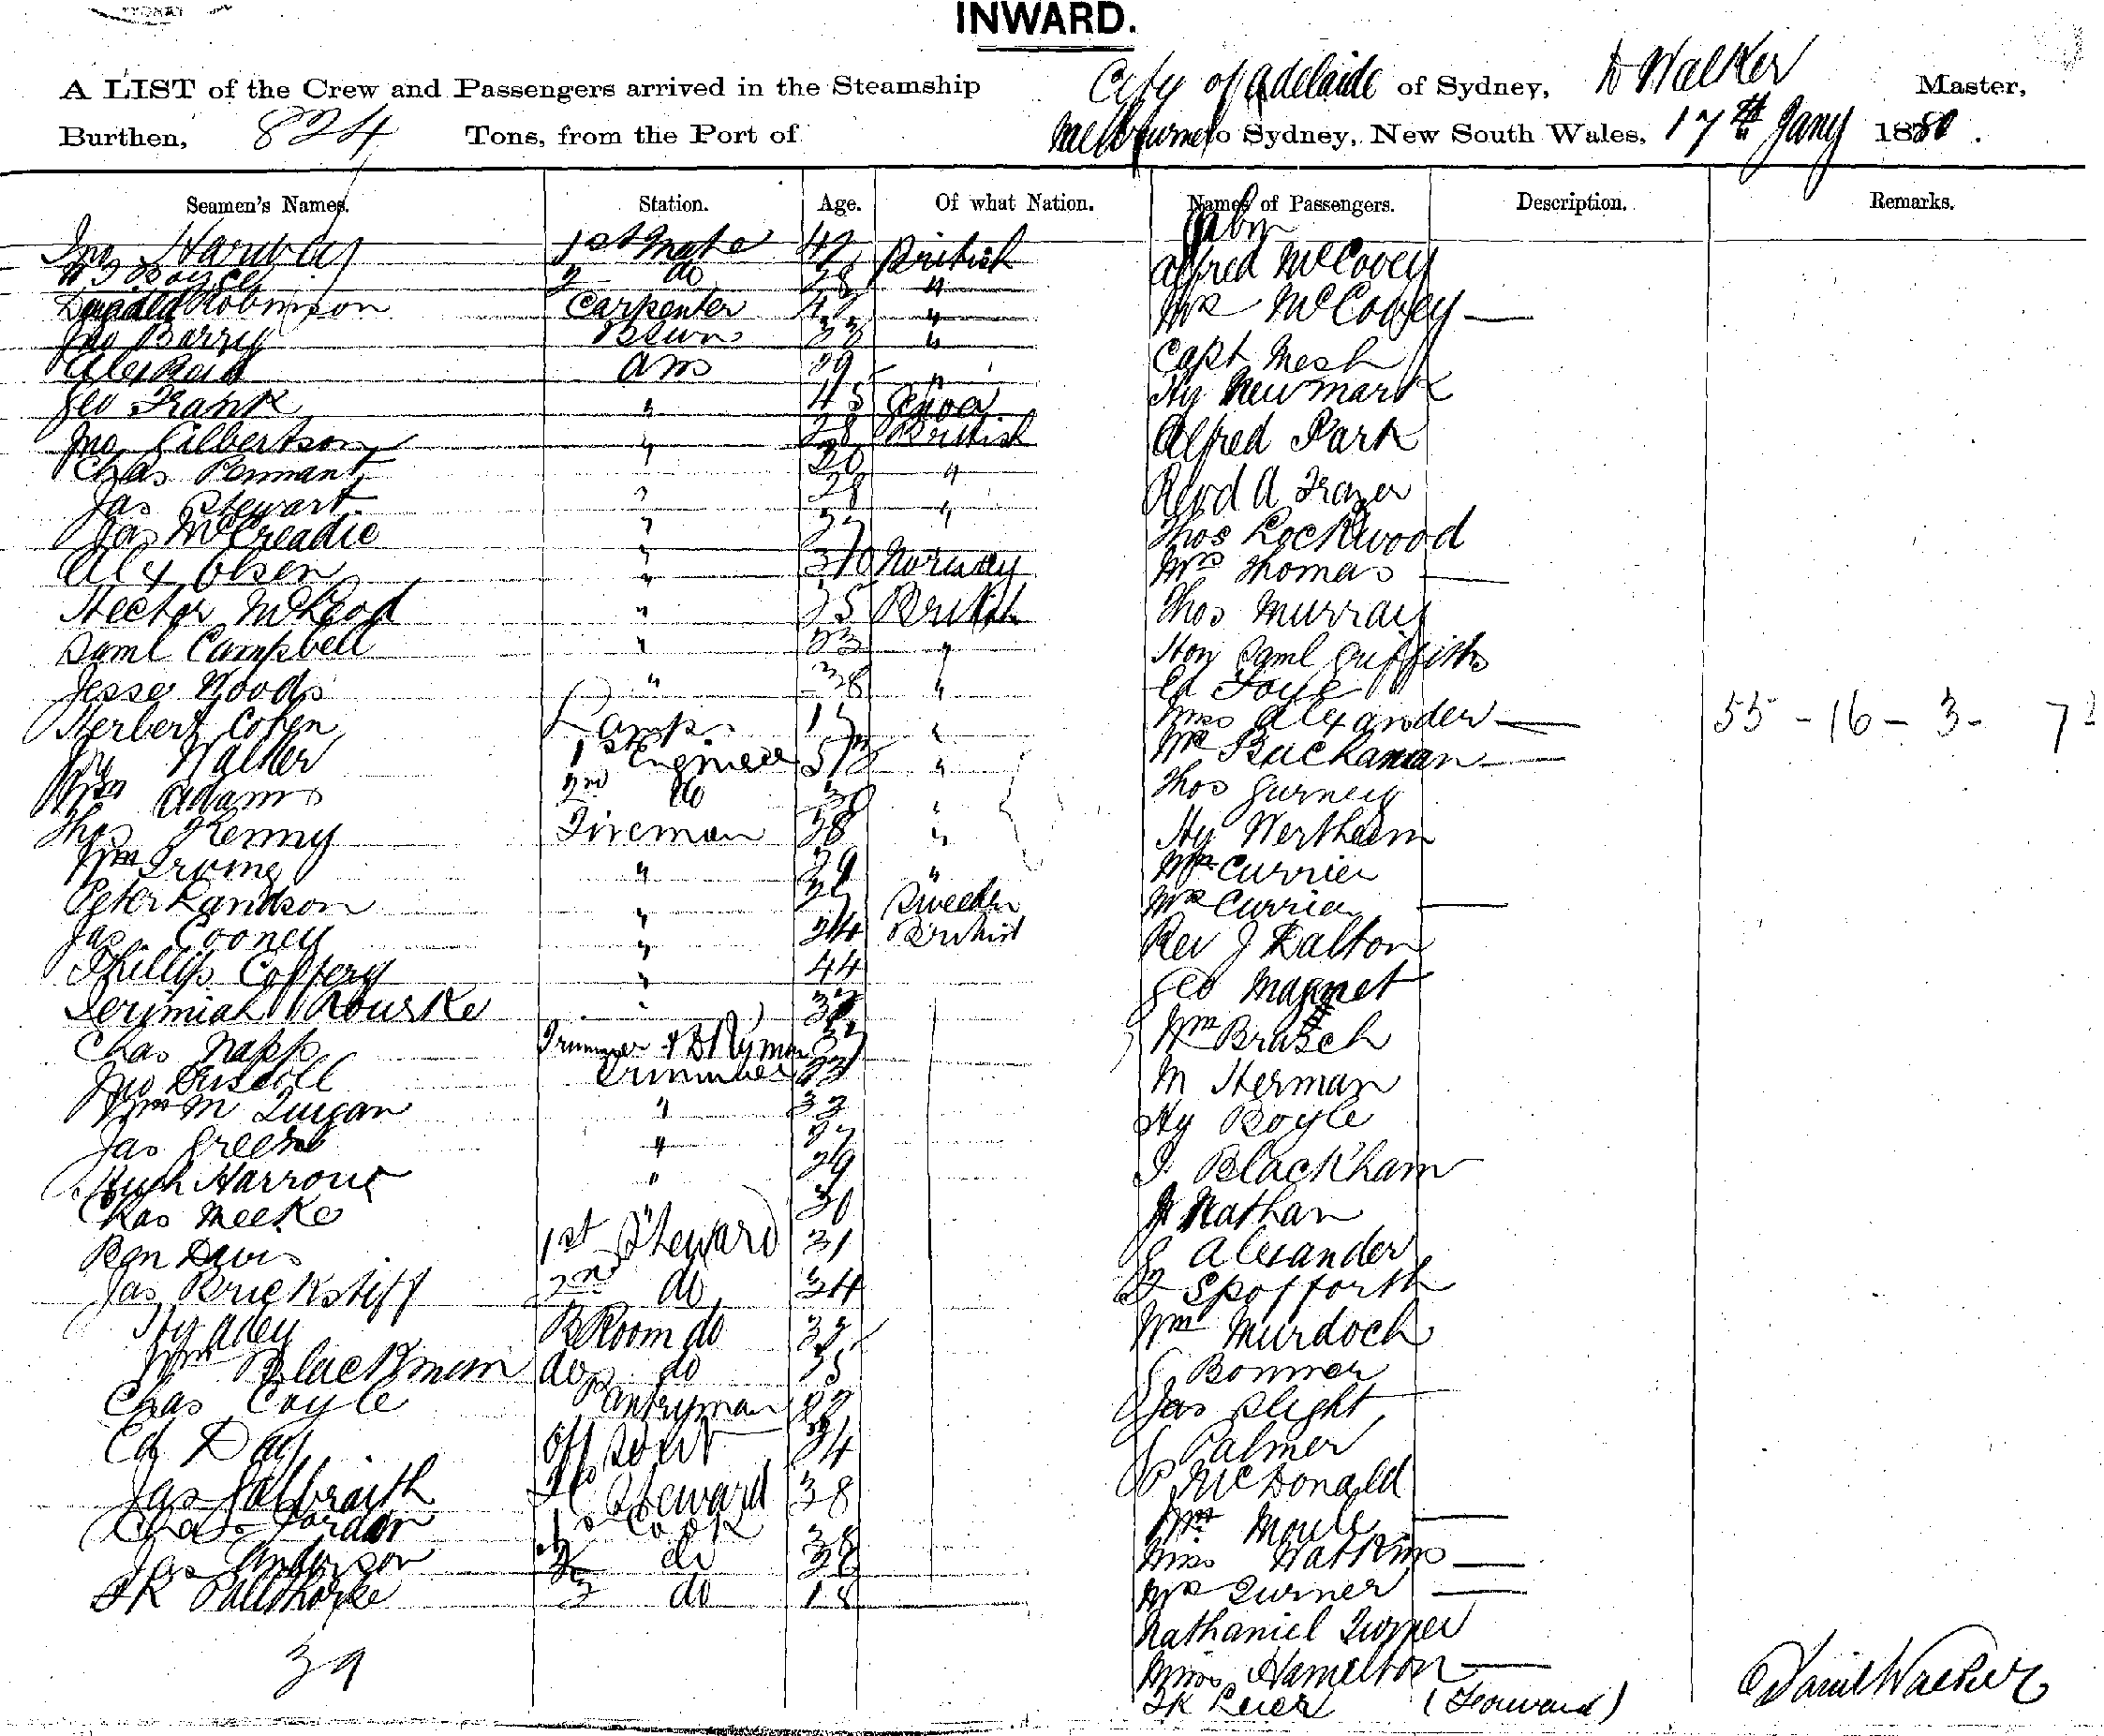 SYDNEY
INWARD.
A LIST of the Crew and Passengers arrived in the Steamship City of Adelaide of Sydney, D Walker Master,
Burthen, 824 Tons, from the Port of Melbourne to Sydney, New South Wales, 17th Jany 1880.
Seamen's Names. Station. Age. Of what Nation. Names of Passengers. Description. Remarks.
Cabin
1st Mate 42 British Alfred McCovey
2 do 28 " Mrs McCovey —
Robinson Carpenter 42 "
Jno Barry Bsun 33 " Capt Mesh
Alex Reid AMS 29 " Hy Newmark
Geo Frank " 45
Jno Gilbertson " 28 British Alfred Park
Chas Pennant " 20 "
Jas Stewart " 28 " Revd A Frazer
Jas McCreadie " Thos Lockwood
Alex Olsen " Norway Mrs Thomas —
Hector McLeod " 25 British Thos Murray
Saml Campbell " 23 " Hon Saml Griffith
Jesse Woods " 38 " Ed Foye
Herbert Cohen Lamps " Miss Alexander —
Walker 1st Engineer " Mrs Buchanan — 55 - 16 - 3 -
Wm Adams 2nd do " Thos Gurney
Thos Kenny Fireman 38 " Hy Wertheim
Wm Irving " 29 " Mr Currier
Peter " Sweden Mrs Currier —
Jas Cooney " 24 British Rev J Dalton
Phillip Coffery " 44 Geo Magnet
Jerymiah Rourke " Wm Brasch
Chas Napp Trummer &
Jno Driscoll Trimmer M Herman
Wm M " 33 Hy Boyle
Jas Greene " 27
Hugh Harrone " 29 Blackham
Chas Meeke " 30 Nathan
Ben Davis 1st Steward 31 G Alexander
Jas Brickstiff 2nd do 34 F Spofforth
Hy Adey B Room do 32 Wm Murdoch
Wm Blackman do do 35 G Bonner
Chas Coyle Pantryman 22 Jas Slight
Ed Day 24 J Palmer
Jas Galbraith Steward 38 P McDonald
Chas Gordon 1st Cook 38 Mrs Moule —
Jas Anderson 2 do 38 Miss Watkins —
FK 3 do 18 Mrs Turner —
Nathaniel Turner
39
Miss Hamelton —
FK Leier (Forward)
Daniel Walker